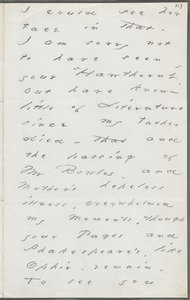 I could see her
face in that.
I am sorry not
to have seen
your "Hawthorne",
but have known
little of Literature
since my Father
died - that and
the passing of
Mr Bowles, and
Mother's hopeless
illness, overwhelmed
my Moments, though
your Pages and
Shakespeare's, like
Ophir - remain.
To see you